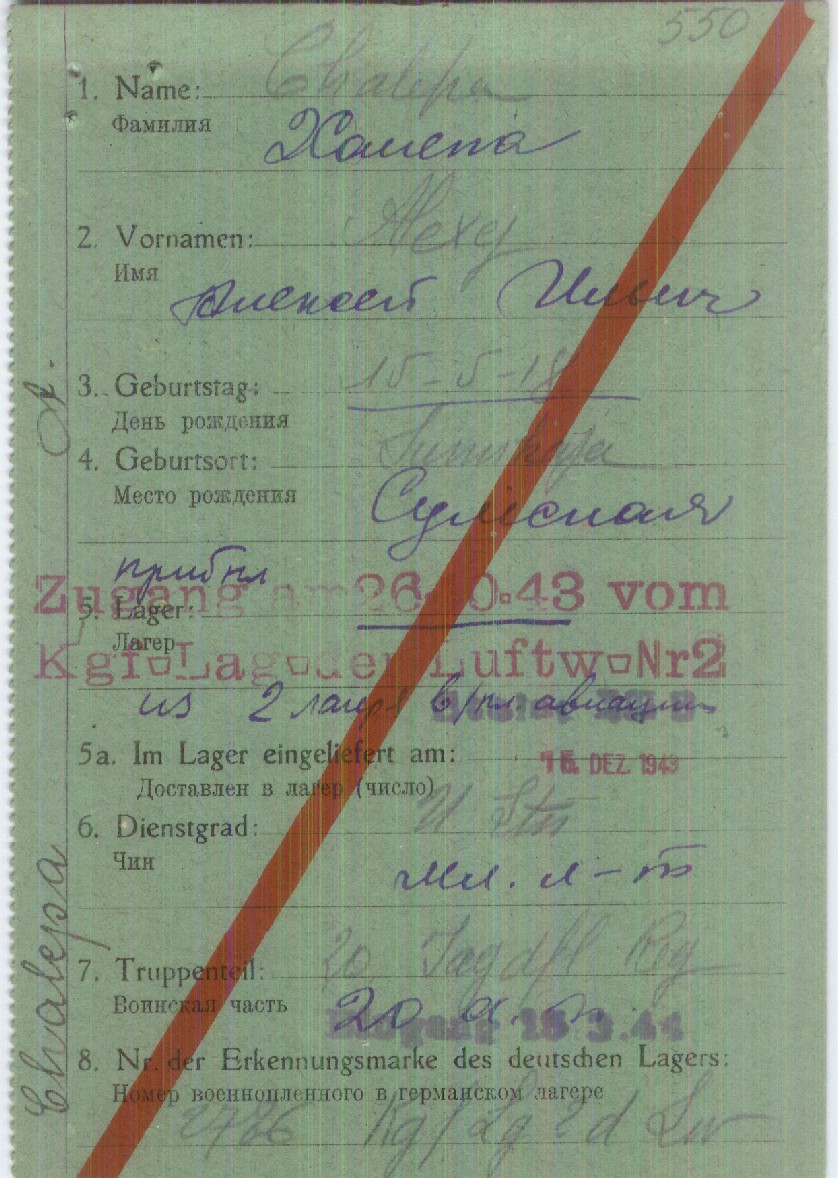 550
1. Name: Chalepa
Фамилия Халепа
2. Vornamen: Alexej
Имя
Алексей Ильич
3. Geburtstag: 15-5-18
День рождения
4. Geburtsort: Sumskaja
Место рождения Сумская
прибыл
Zugang am 26.10.43 vom
5. Lager:
Лагер
Kgf.Lag.der Luftw.Nr2
из 2 лагеря в/пл авиации
5a. Im Lager eingeliefert am: 15. DEZ. 1943
Доставлен в лагер (число)
6. Dienstgrad: U Stu
Чин мл. л-т
7. Truppenteil: 20 Jagdfl Reg
Воинская часть 20 а.п.
18.3.44
8. Nr. der Erkennungsmarke des deutschen Lagers:
Номер военнопленного в германском лагере
2786 Kgf Lg 2 d Lw
Chalepa A.